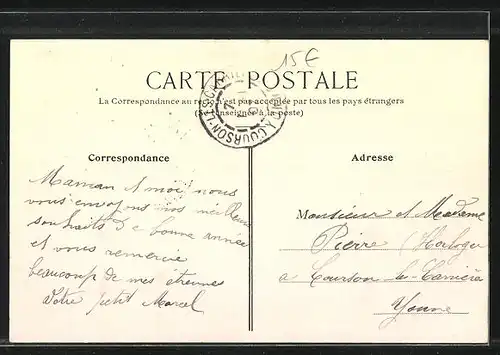 15€
CARTE POSTALE
La Correspondance au recto n'est pas acceptée par tous les pays étrangers
(Se renseigner à la poste)
Correspondance
Adresse
Maman et moi nous
vous envoyons nos meilleurs
souhaits de bonne année
et vous remercie
beaucoup de mes étrennes
Votre petit Marcel
Monsieur et Madame
Pierre (Horloger
a Courson-les-Carrières
Yonne